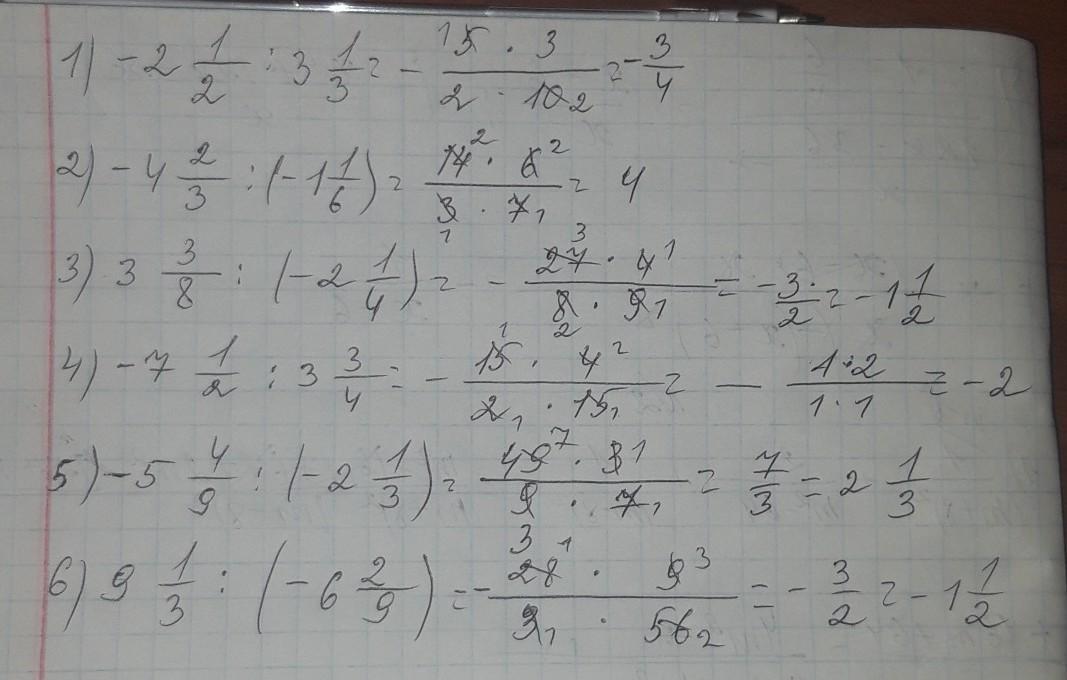 1) -2 1/2 : 3 1/3 = - (15 · 3)/(2 · 10 2) = - 3/4
2) -4 2/3 : (-1 1/6) = (14² · 6²)/(3 1 · 7 1) = 4
3) 3 3/8 : (-2 1/4) = - (27 3 · 4 1)/(8 2 · 9 1) = - 3/2 = -1 1/2
4) -7 1/2 : 3 3/4 = - (15 1 · 4 2)/(2 1 · 15 1) = - (1·2)/(1·1) = -2
5) -5 4/9 : (-2 1/3) = (49 7 · 3 1)/(9 3 · 7 1) = 7/3 = 2 1/3
6) 9 1/3 : (-6 2/9) = - (28 1 · 9 3)/(3 1 · 56 2) = - 3/2 = -1 1/2